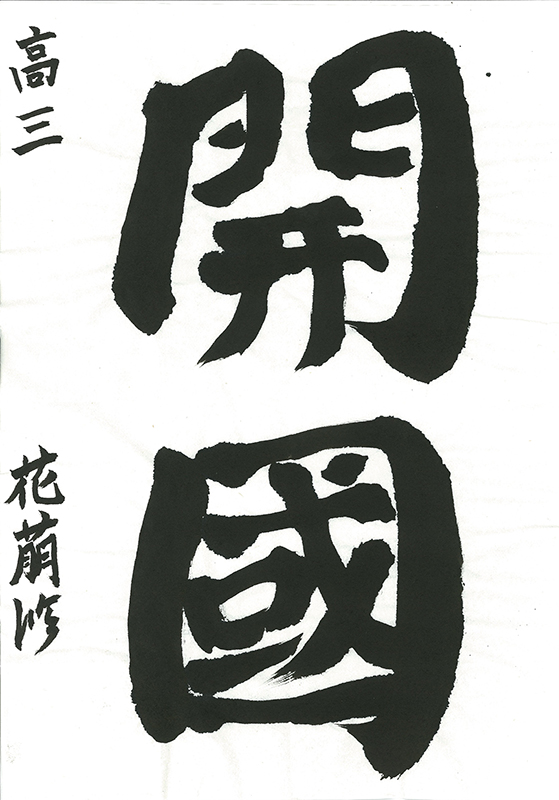 開國
高三 花萠